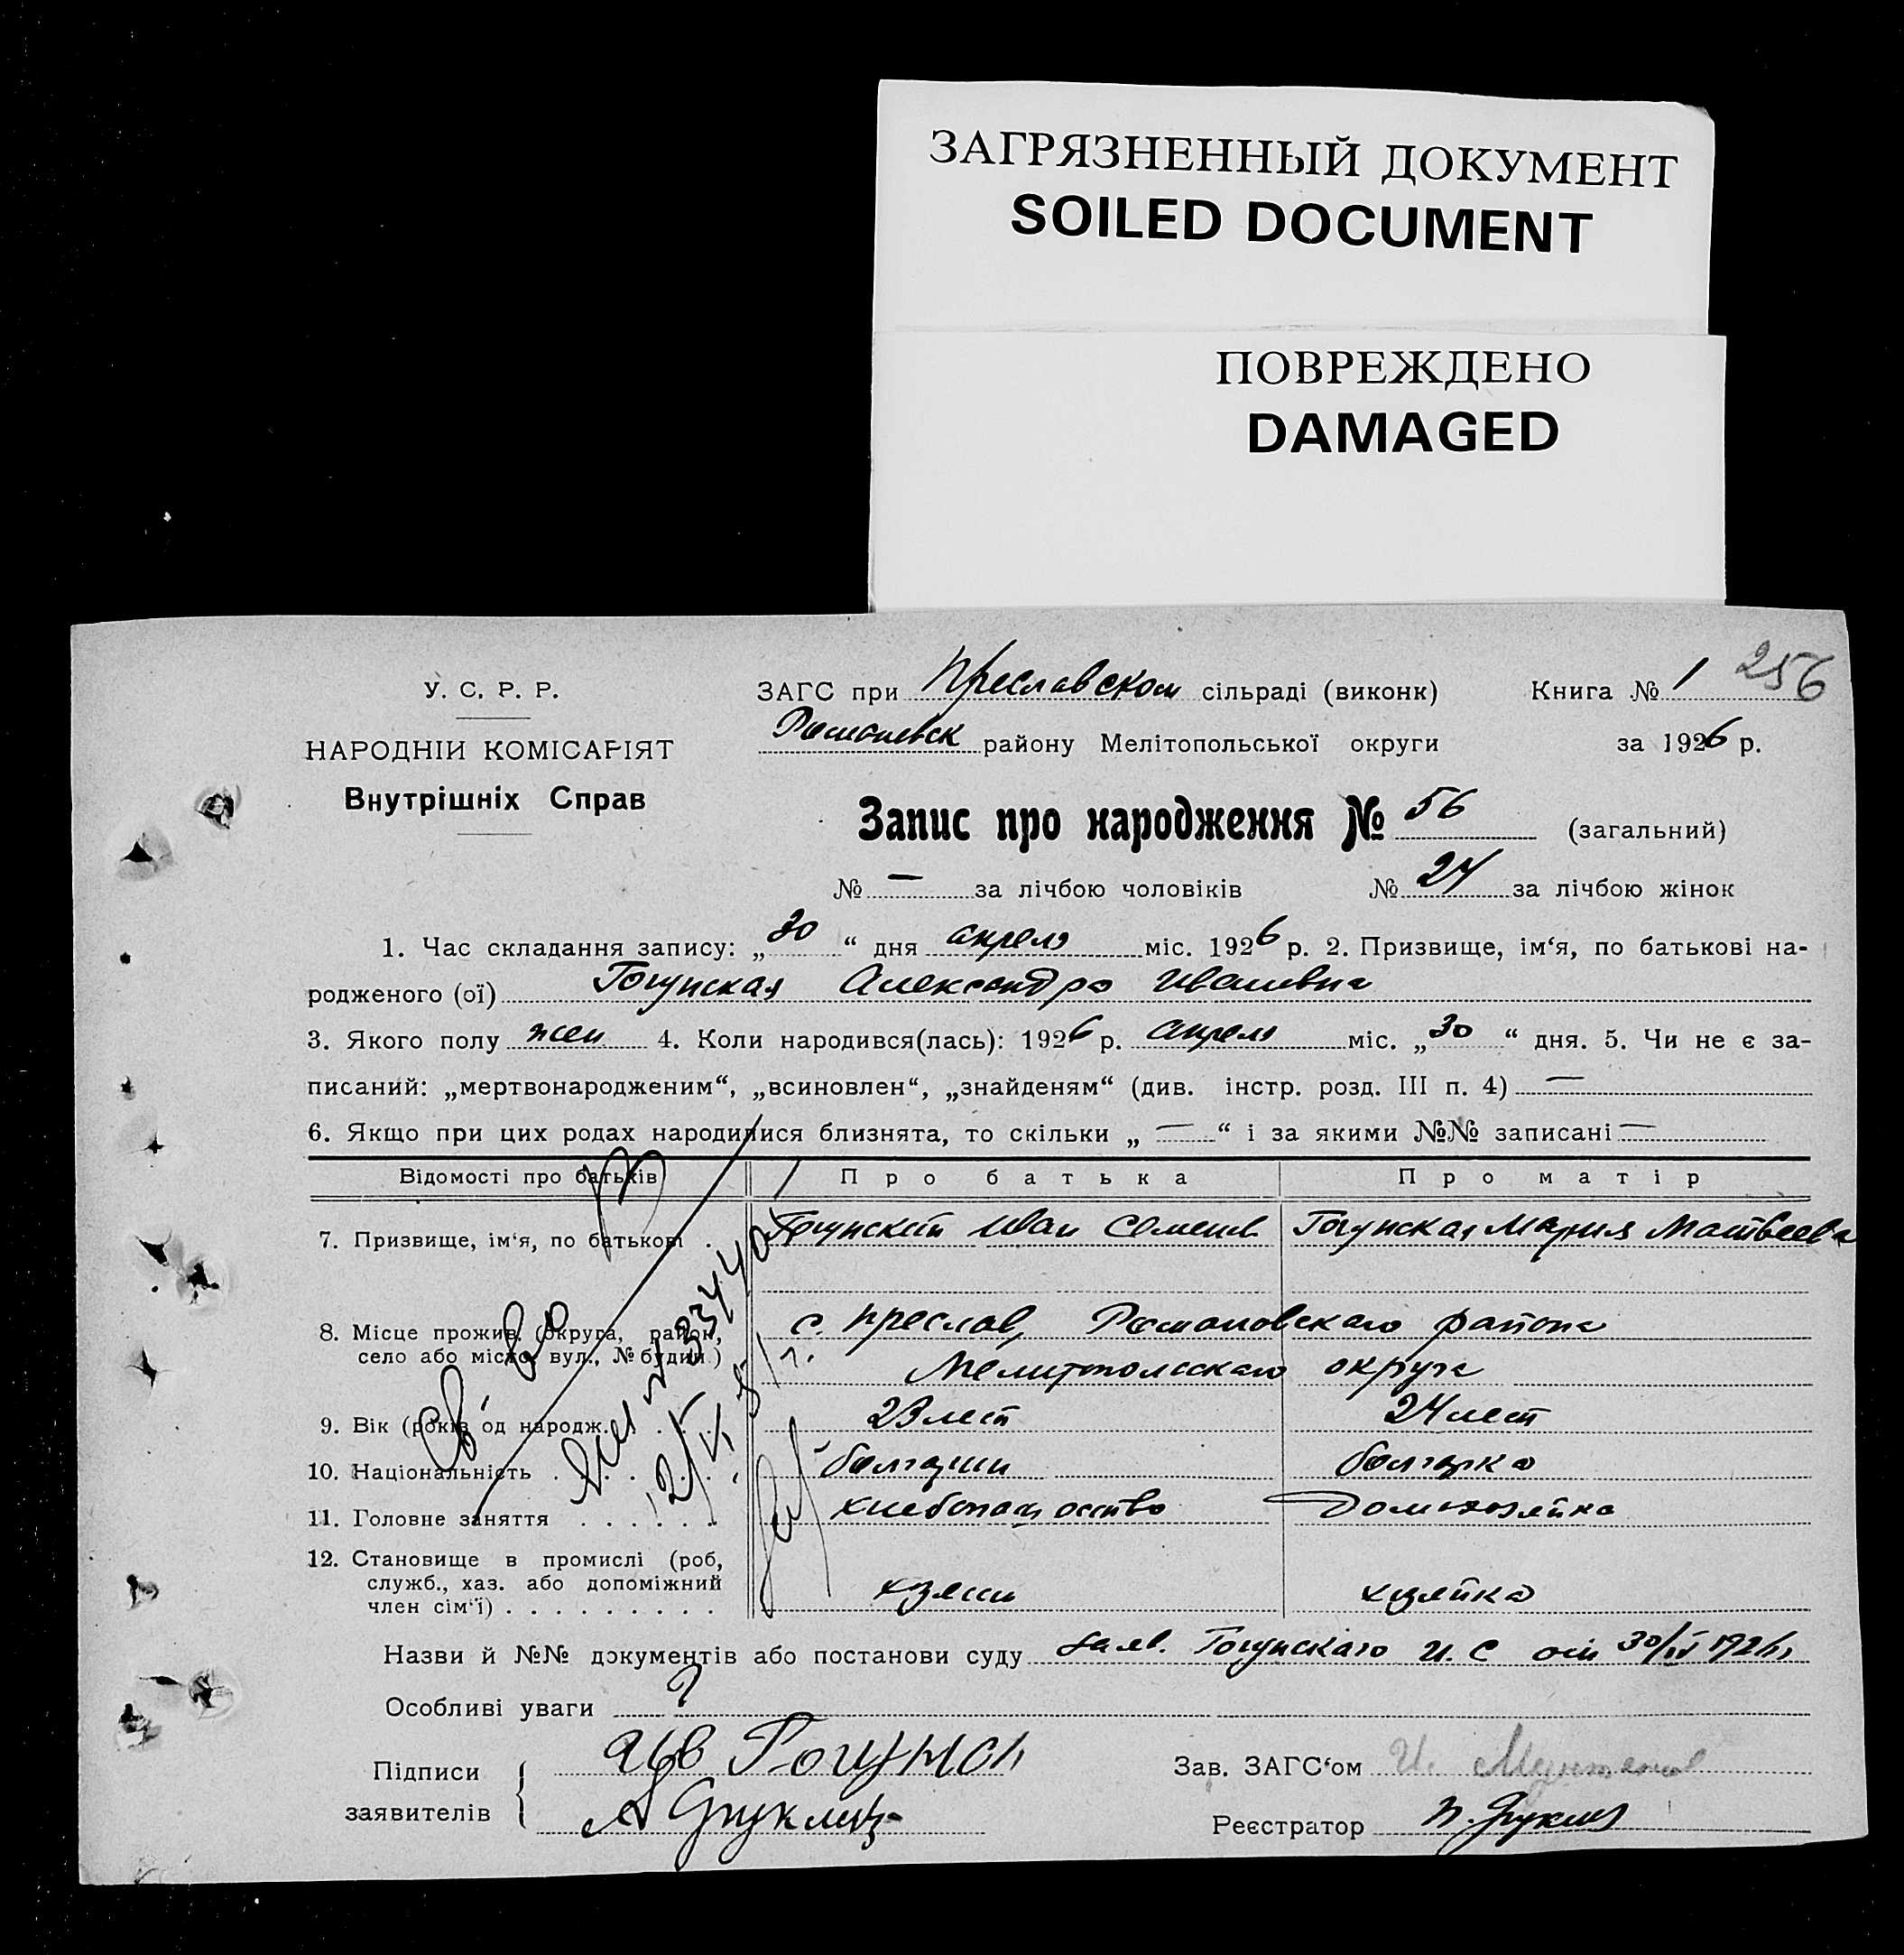 ЗАГРЯЗНЕННЫЙ ДОКУМЕНТ
SOILED DOCUMENT
ПОВРЕЖДЕНО
DAMAGED
256
У. С. Р. Р.
НАРОДНІЙ КОМІСАРІЯТ
Внутрішніх Справ
ЗАГС при Преславском сільраді (виконк) Книга № 1
Романовск району Мелітопольської округи за 1926 р.
Запис про народження № 56 (загальний)
№ — за лічбою чоловіків № 24 за лічбою жінок
1. Час складання запису: „30“ дня апреля міс. 1926 р. 2. Призвище, ім‘я, по батькові на-
родженого (ої) Гогунская Александра Ивановна
3. Якого полу жен 4. Коли народився(лась): 1926 р. апреля міс. „30“ дня. 5. Чи не є за-
писаний: „мертвонародженим“, „всиновлен“, „знайденям“ (див. інстр. розд. III п. 4) —
6. Якщо при цих родах народилися близнята, то скільки „ — “ і за якими №№ записані —
Відомості про батьків Про батька Про матір
7. Призвище, ім‘я, по батькові . Гогунский Иван Семенов Гогунская Мария Матвеева
8. Місце прожив. (округа, район, с. Преслав, Романовского района
село або місто, вул., № будин.) Мелитопольскаго округа
9. Вік (років од народж. 23 лет 24 лет
10. Національність болгарин болгарка
11. Головне заняття хлебопашество Домохозяйка
12. Становище в промислі (роб,
служб., хаз. або допоміжний
член сім‘ї) хозяин хозяйка
Назви й №№ документів або постанови суду заяв. Гогунскаго И. С от 30/IV 1926 г.
Особливі уваги
Підписи
заявителів
Зав. ЗАГС‘ом
Реєстратор